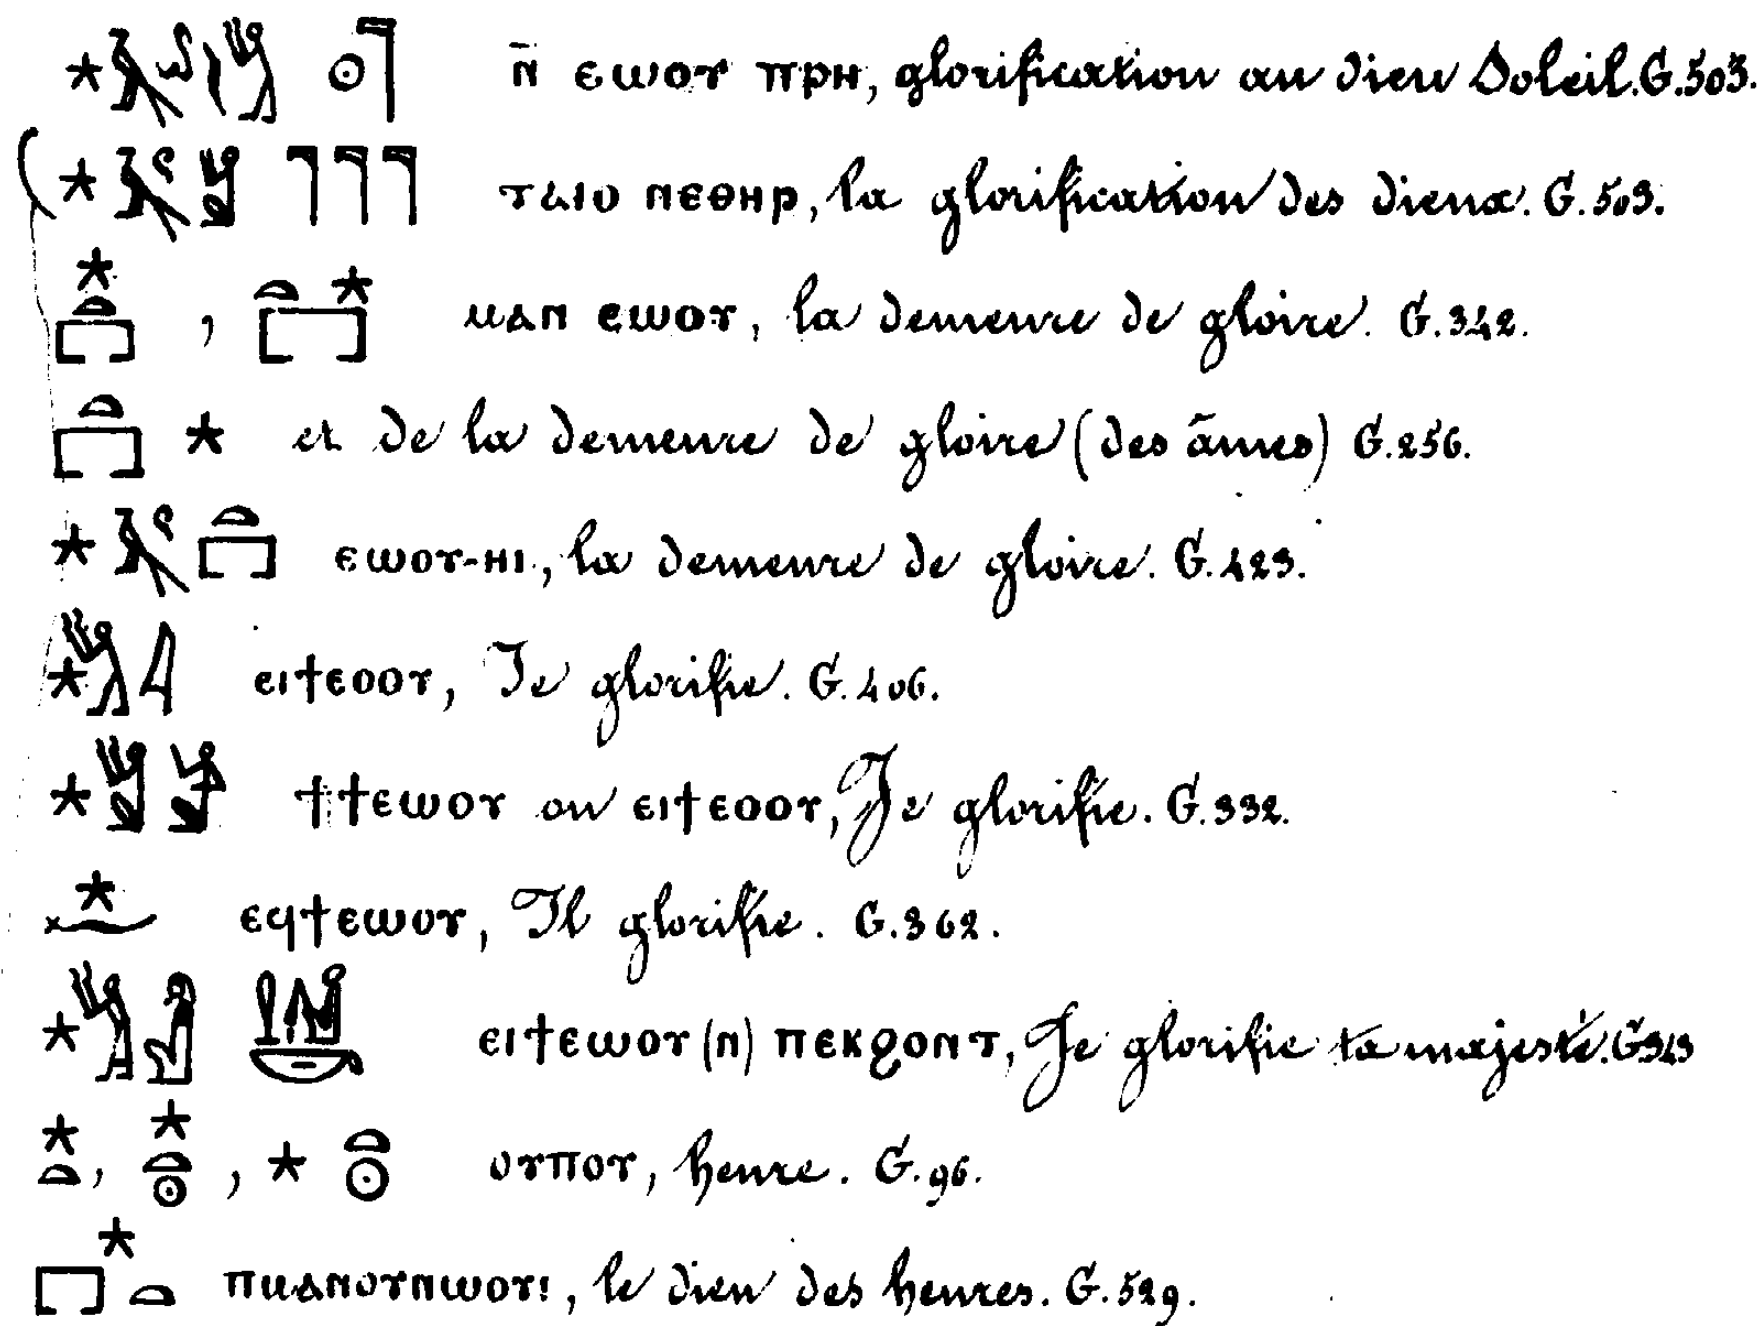 ⲛ̄ ⲉⲱⲟⲩ ⲡⲣⲏ, glorification au dieu Soleil. G. 503.
ⲧⲁⲓⲟ ⲛⲉⲑⲏⲣ, la glorification des dieux. G. 503.
, ⲙⲁⲛ ⲉⲱⲟⲩ, la demeure de gloire. G. 342.
et de la demeure de gloire (des âmes) G. 256.
ⲉⲱⲟⲩ-ⲏⲓ, la demeure de gloire. G. 423.
ⲉⲓϯⲉⲟⲟⲩ, Je glorifie. G. 406.
ϯϯⲉⲱⲟⲩ ou ⲉⲓϯⲉⲟⲟⲩ, Je glorifie. G. 332.
ⲉϥϯⲉⲱⲟⲩ, Il glorifie. G. 362.
ⲉⲓϯⲉⲱⲟⲩ (ⲛ) ⲡⲉⲕϩⲟⲛⲧ, Je glorifie ta majesté. G.
, , ⲟⲩⲡⲟⲩ, heure. G. 96.
ⲡⲙⲁⲛⲟⲩⲛⲱⲟⲩⲓ, le dieu des heures. G. 529.